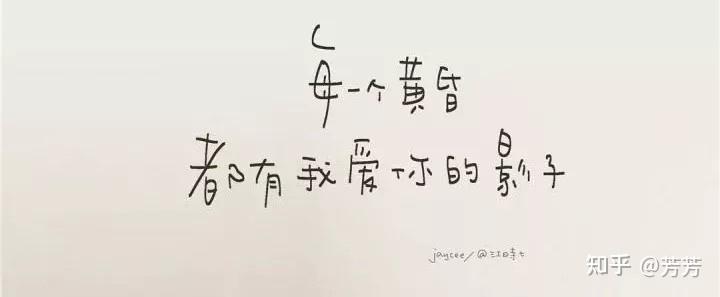 每一个黄昏
都有我爱你的影子
jaycee/@江
知乎 @芳芳